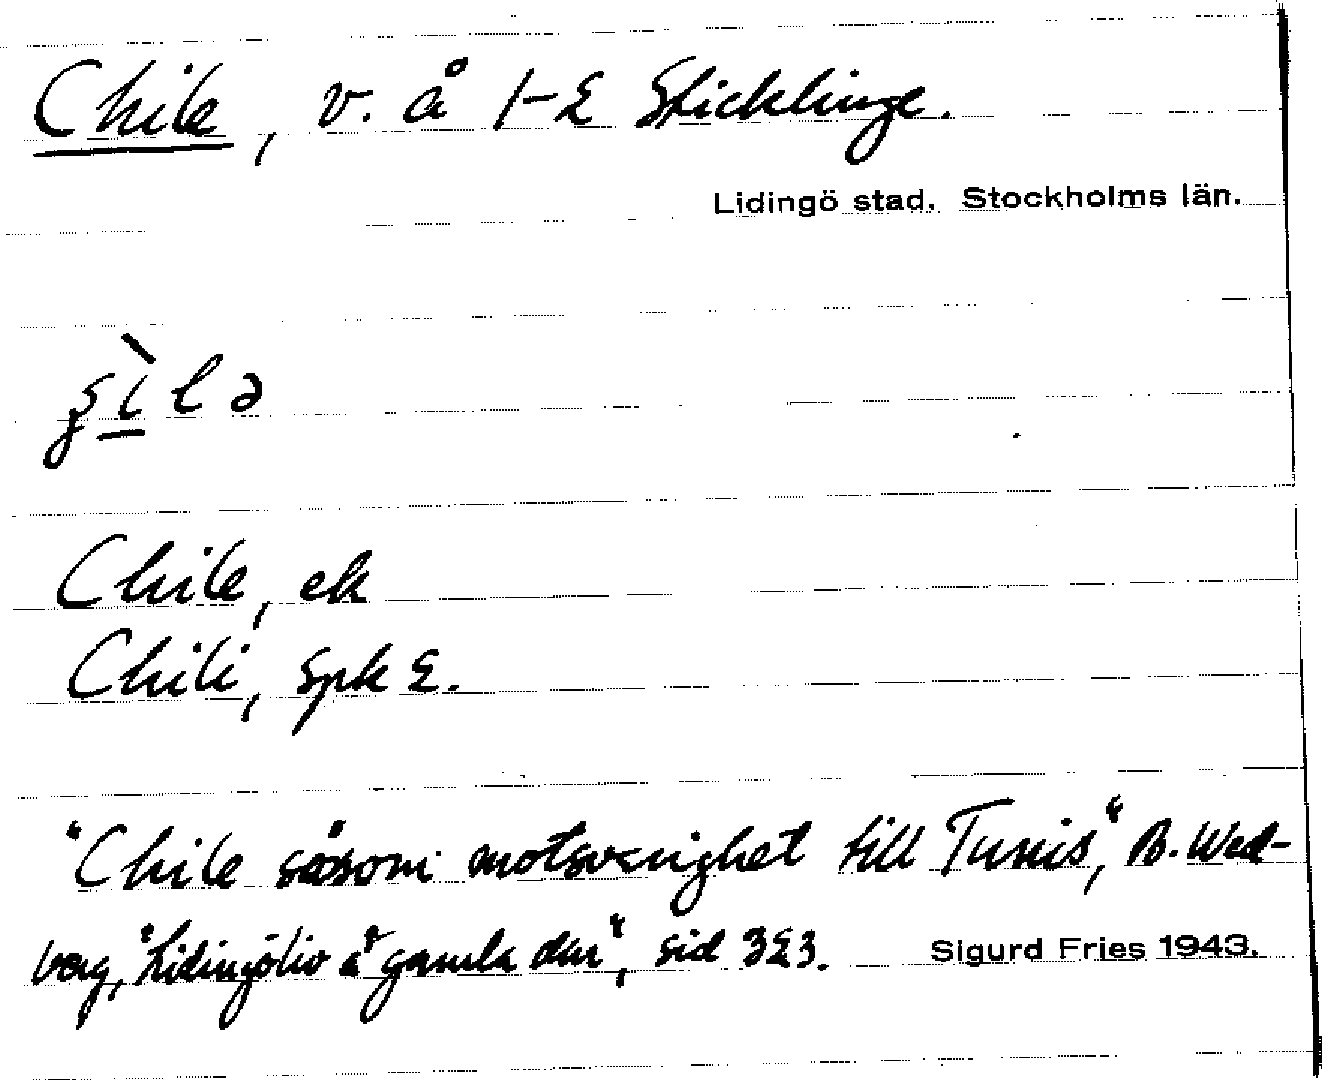 Chile, v. å 1-2 Sticklinge.
Lidingö stad. Stockholms län.
ʂìlə
Chile, ek
Chili, Spk 2.
"Chile såsom motsvarighet till Tunis", B. Wed-
berg, "Lidingöliv i gamla dar", sid 323. Sigurd Fries 1943.